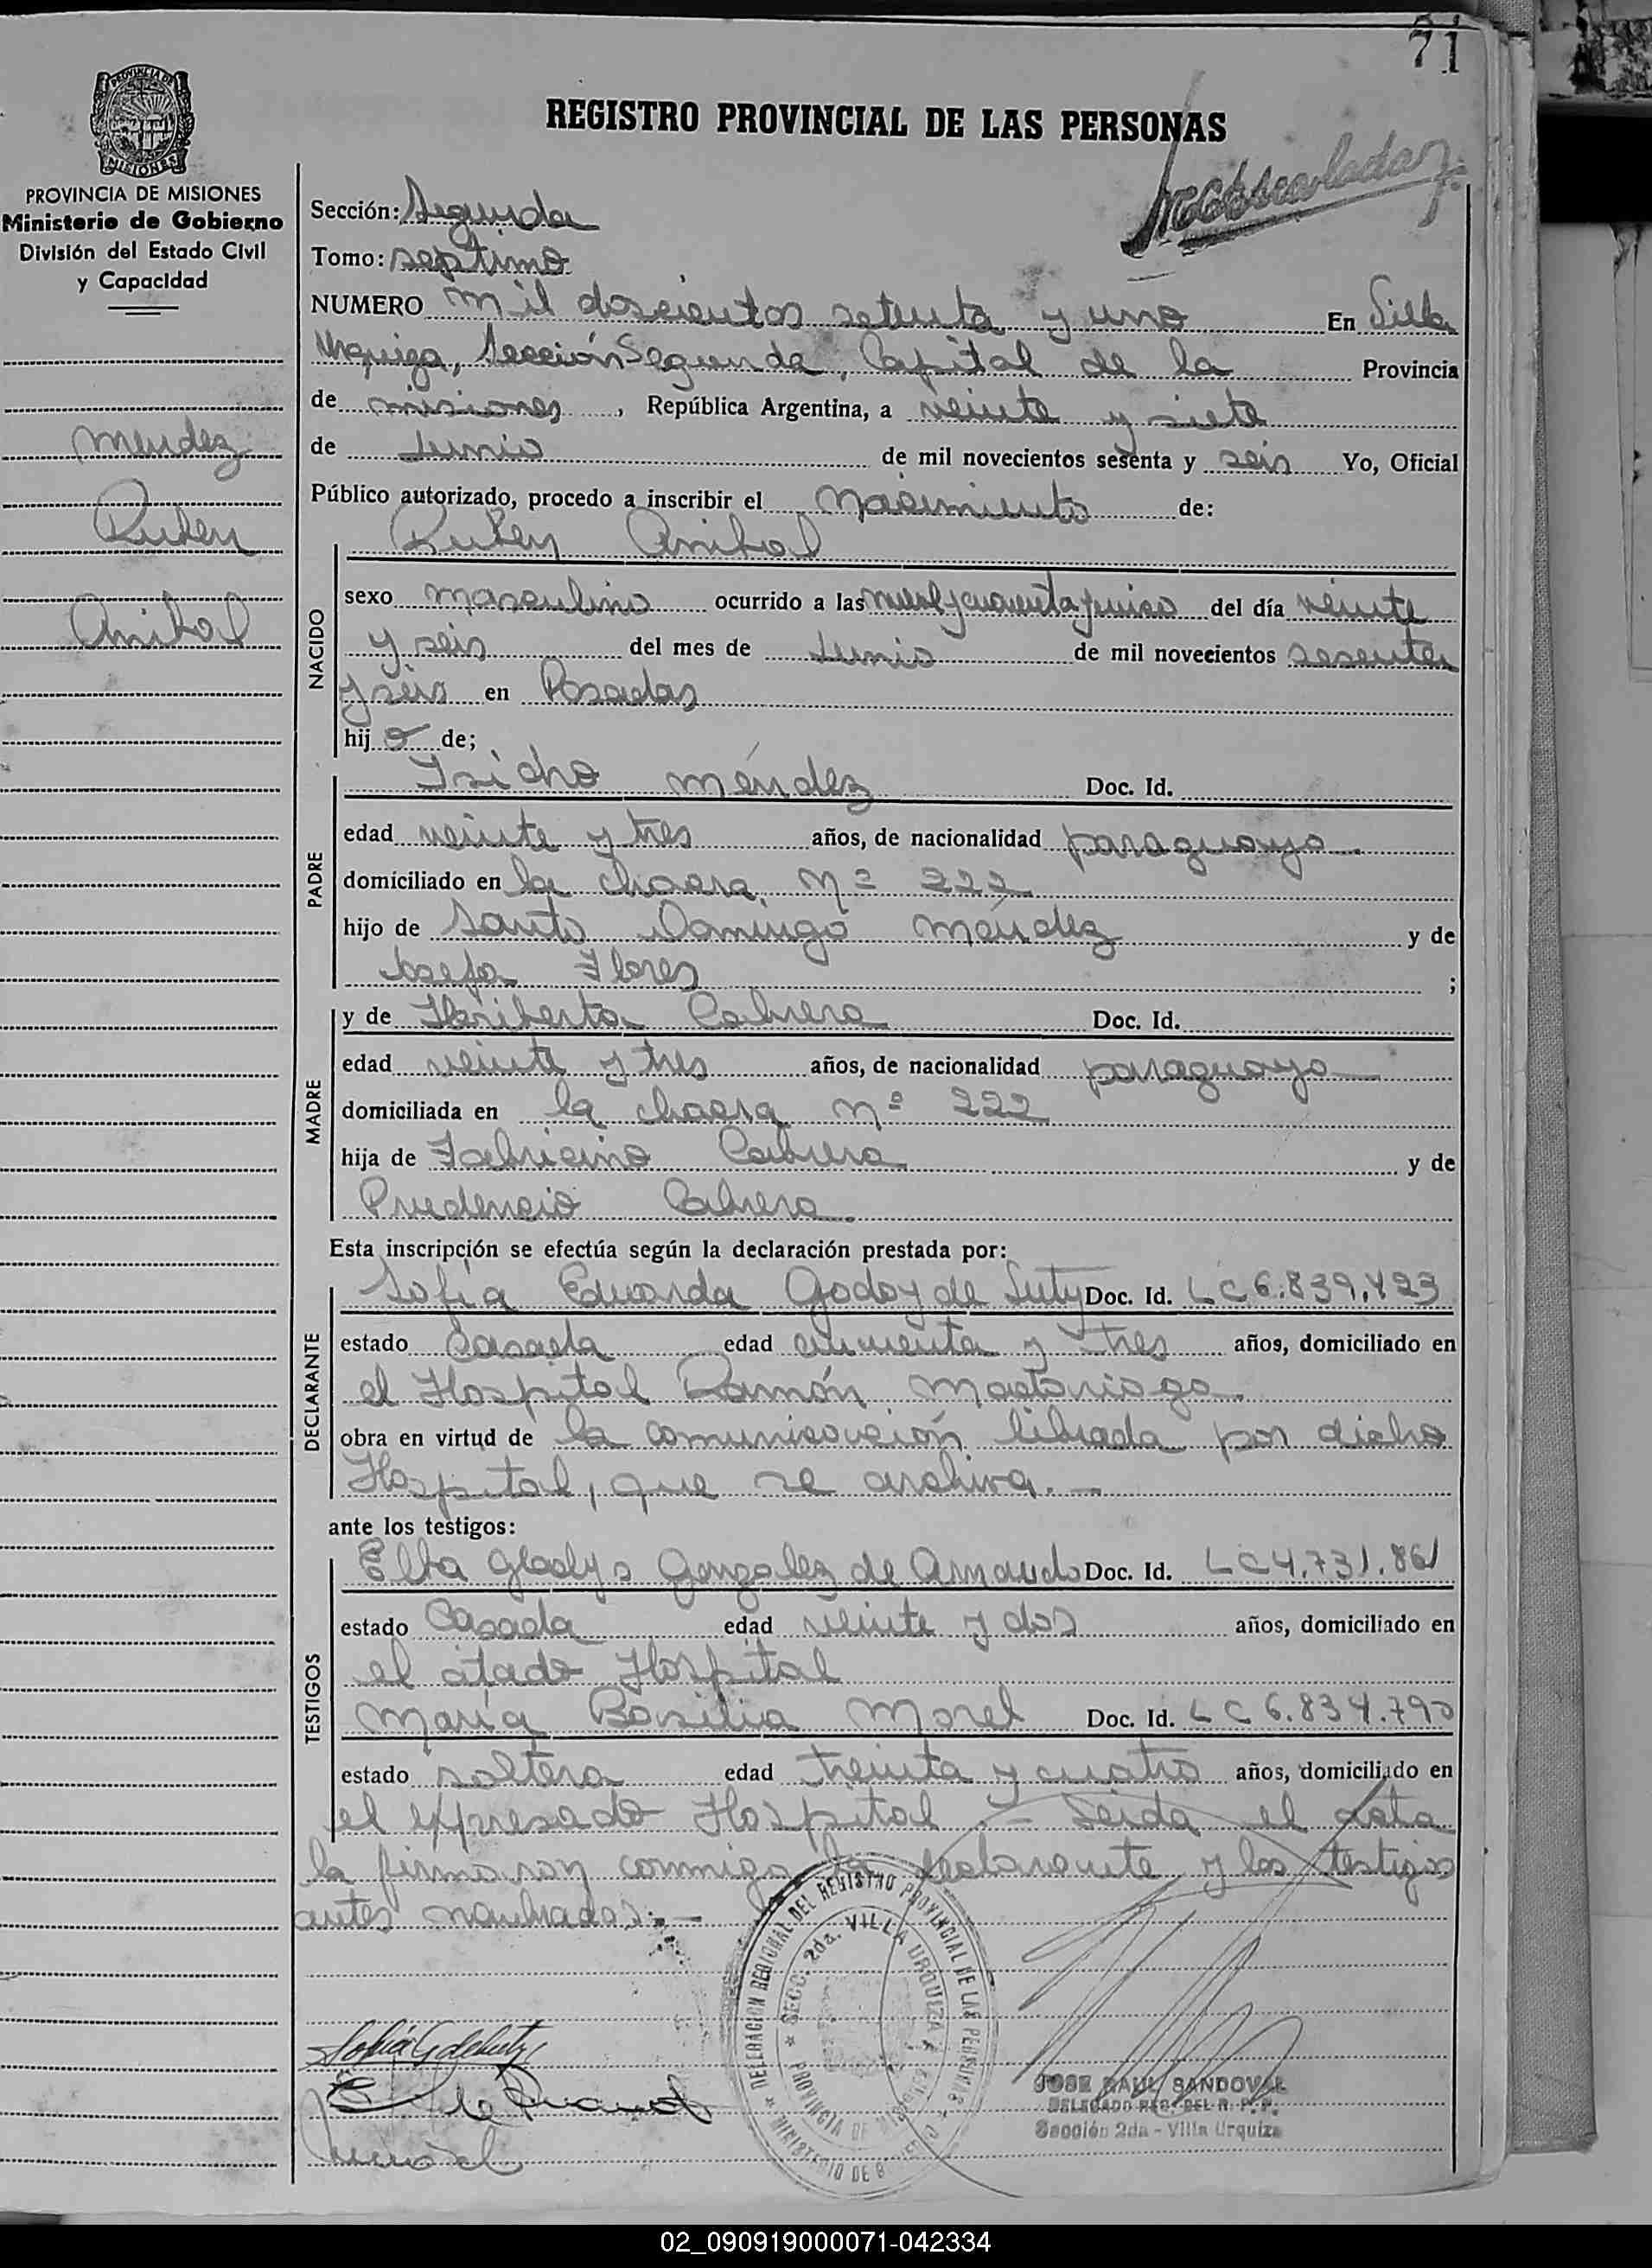 71
REGISTRO PROVINCIAL DE LAS PERSONAS
PROVINCIA DE MISIONES
Ministerio de Gobierno
División del Estado Civil
y Capacidad
Mendez
Ruben
Anibal
Sección: Segunda
Tomo: septimo
NUMERO mil doscientos setenta y uno En Villa
Urquiza, Sección Segunda, Capital de la Provincia
de misiones, República Argentina, a veinte y siete
de Junio de mil novecientos sesenta y seis Yo, Oficial
Público autorizado, procedo a inscribir el Nacimiento de:
NACIDO
Ruben Anibal
sexo masculino ocurrido a las del día veinte
y seis del mes de Junio de mil novecientos sesenta
y seis en Posadas
hijo de;
PADRE
Isicho Méndez Doc. Id.
edad veinte y tres años, de nacionalidad paraguaya
domiciliado en la chacra Nº 222
hijo de Santo Domingo Méndez y de
Josefa Flores ;
MADRE
y de Heriberta Cabrera Doc. Id.
edad veinte y tres años, de nacionalidad paraguaya
domiciliada en la chacra Nº 222
hija de Cabrera y de
Prudencio Cabrera
Esta inscripción se efectúa según la declaración prestada por:
DECLARANTE
Sofía Eduarda Godoy de Luty Doc. Id. LC 6.839.423
estado Casada edad cincuenta y tres años, domiciliado en
el Hospital Ramón Madariaga
obra en virtud de la comunicación librada por dicho
Hospital, que se archiva.-
ante los testigos:
TESTIGOS
Elba Gladys Gonzalez de Arnaudo Doc. Id. LC 4.731.861
estado Casada edad veinte y dos años, domiciliado en
el citado Hospital
María Basilia Morel Doc. Id. LC 6.834.790
estado soltera edad treinta y cuatro años, domiciliado en
el expresado Hospital.- Leida el acta
la firmaron conmigo la declarante y los testigos
antes nombrados.-
DELEGACION REGIONAL DEL REGISTRO PROVINCIAL DE LAS PERSONAS
MINISTERIO DE GOBIERNO
SECC. 2da. VILLA URQUIZA
PROVINCIA DE MISIONES
JOSE RAUL SANDOVAL
DELEGADO REG. DEL R. P. P.
Sección 2da - Villa Urquiza
02_090919000071-042334